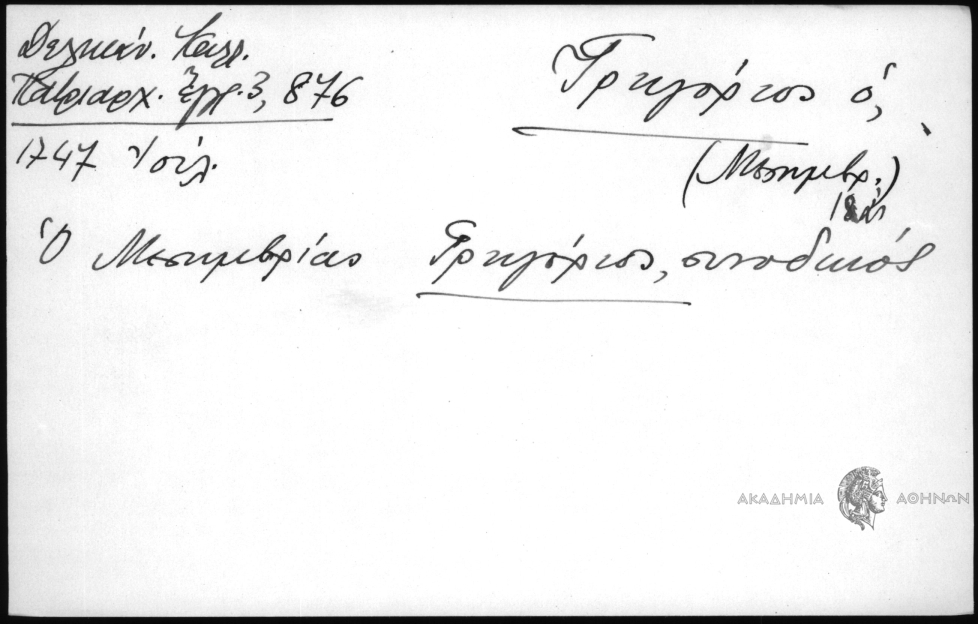 Δελικάν. Καλλ.
Πατριαρχ. Ἔγγρ. 3, 876
1747
Γρηγόριος ὁ,
(Μεσημβρ.)
Ὁ Μεσημβρίας Γρηγόριος, συνοδικός
ΑΚΑΔΗΜΙΑ ΑΘΗΝΩΝ